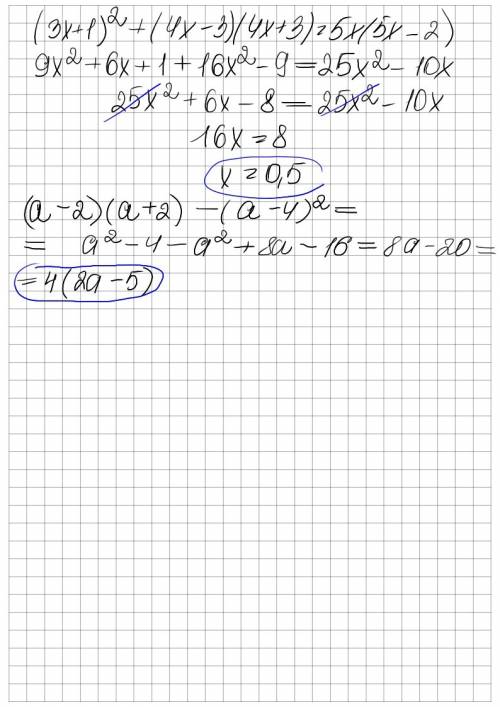 (3x+1)² + (4x-3)(4x+3)=5x(5x-2)
9x²+6x+1+16x²-9=25x²-10x
25x²+6x-8=25x²-10x
16x=8
x=0,5
(a-2)(a+2)-(a-4)²=
= a²-4-a²+8a-16=8a-20=
=4(2a-5)